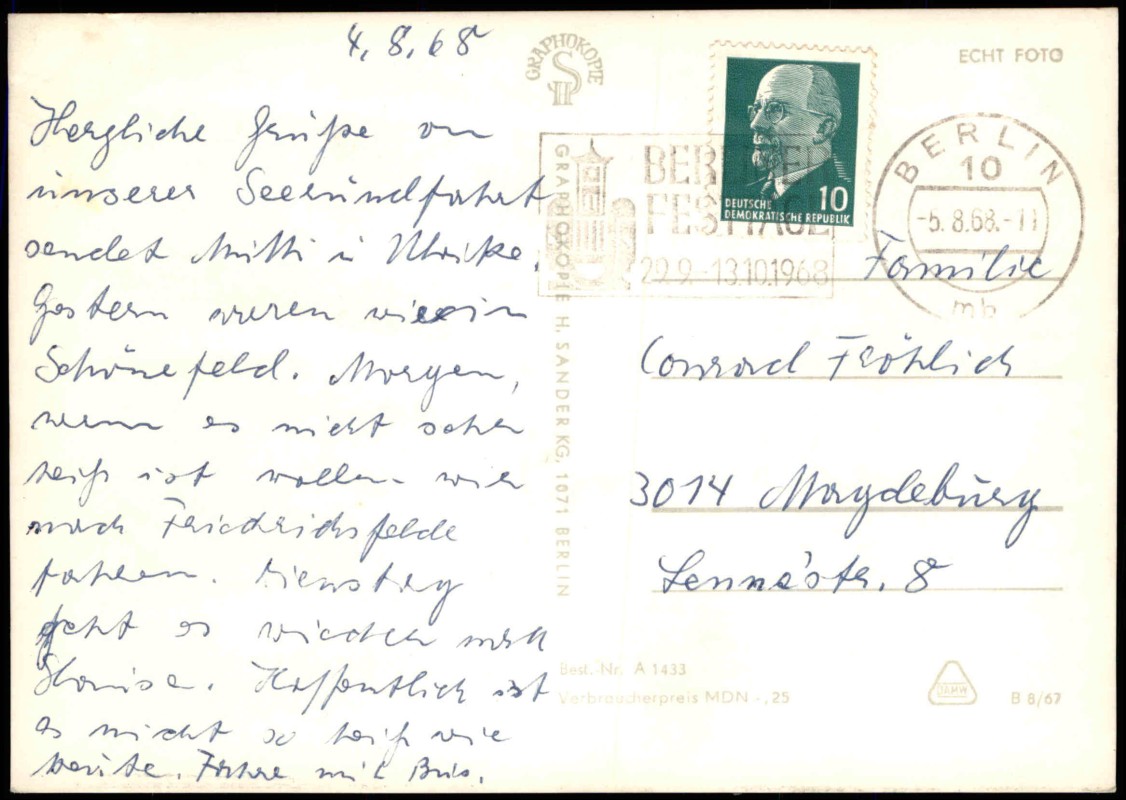 4.8.68
Herzliche Grüße von
unserer Seerundfahrt
sendet Mutti u. Ulrike.
Gestern waren wir in
Schönefeld. Morgen,
wenn es nicht sehr
heiß ist wollen wir
nach Friedrichsfelde
fahren. Dienstag
geht es wieder nach
Hause. Hoffentlich ist
es nicht so heiß wie
heute. Fahre mit Bus.
GRAPHOKOPIE
H S
GRAPHOKOPIE H. SANDER KG, 1071 BERLIN
ECHT FOTO
DEUTSCHE
DEMOKRATISCHE REPUBLIK
10
BERLINER
FESTTAGE
29.9.-13.10.1968
BERLIN
10
-5.8.68.-11
mb
Familie
Conrad Fröhlich
3014 Magdeburg
Lennéstr. 8
Best.-Nr. A 1433
Verbraucherpreis MDN -,25
DAMW
B 8/67